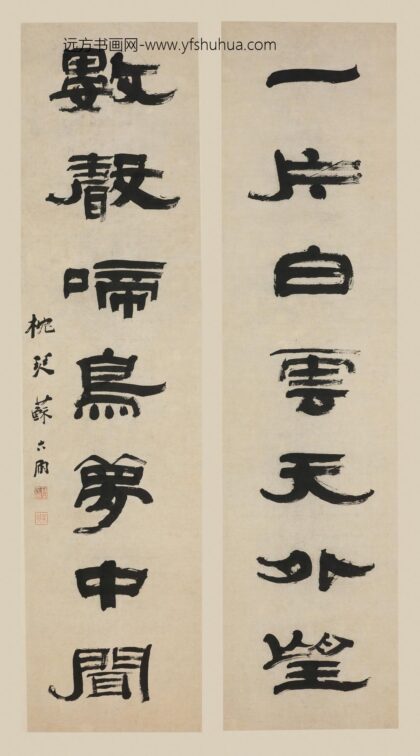 远方书画网-www.yfshuhua.com
一片白雲天外望
數聲啼鳥夢中聞
枕琴蘇六朋